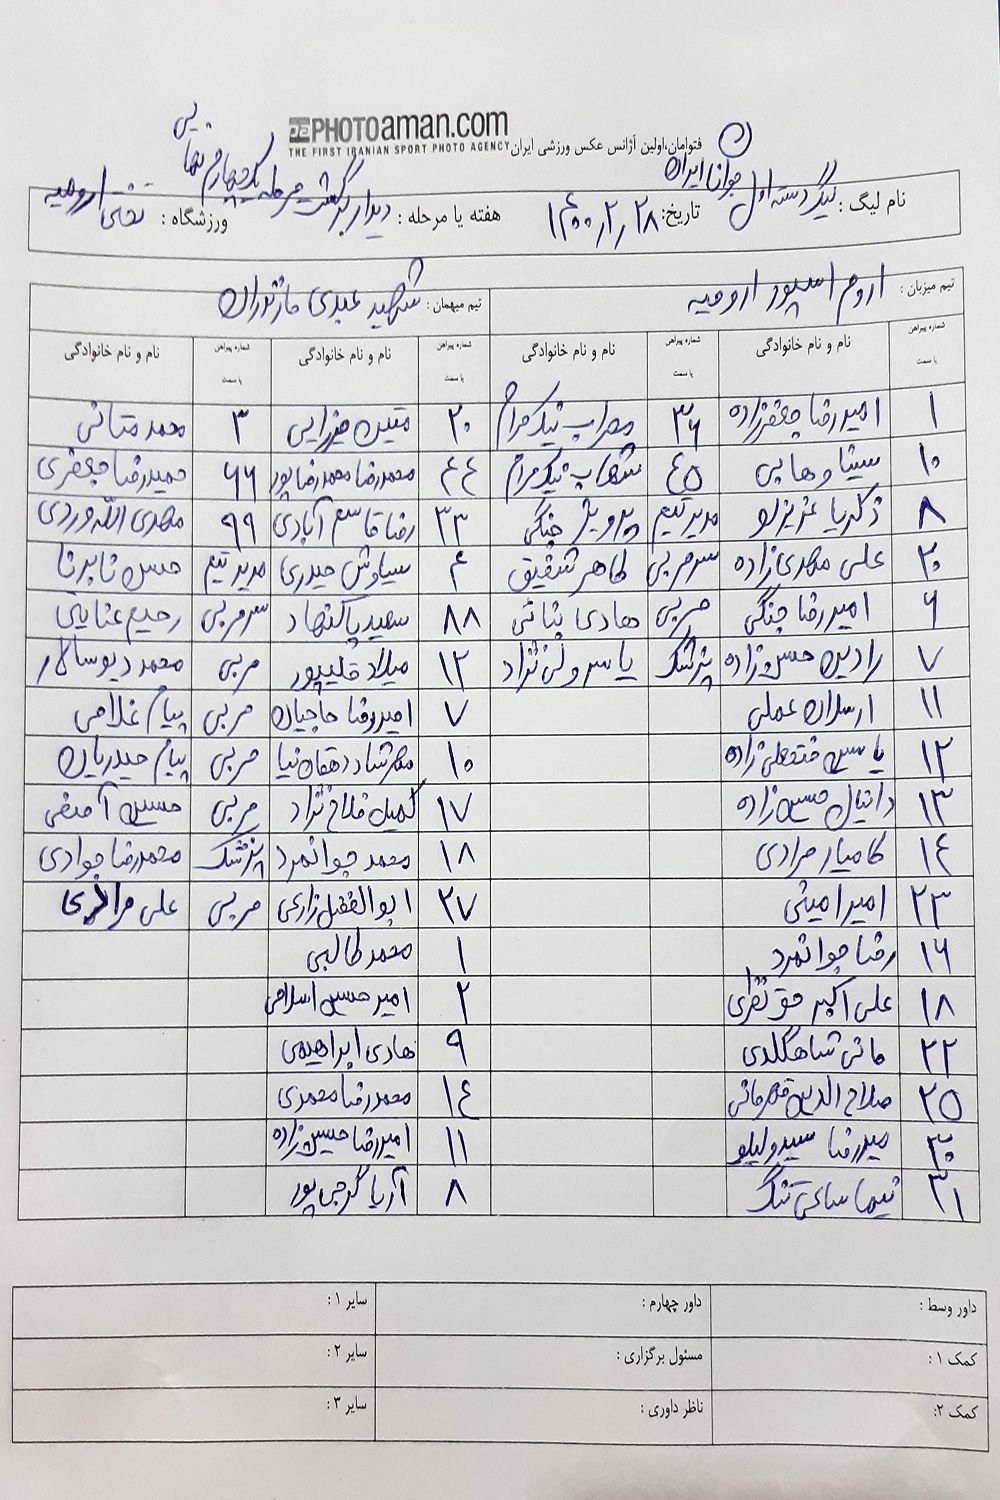 PHOTOaman.com
THE FIRST IRANIAN SPORT PHOTO AGENCY
فتوامان،اولین آژانس عکس ورزشی ایران
نام لیگ : لیگ دسته اول جوانان ایران تاریخ: ۱۴۰۰٫۲٫۲۸ هفته یا مرحله : دیدار برگشت مرحله یک چهارم نهایی ورزشگاه : تختی ارومیه
تیم میزبان : اروم اسپور ارومیه تیم میهمان : شهید عبدی مازندران
شماره پیراهن یا سمت نام و نام خانوادگی شماره پیراهن یا سمت نام و نام خانوادگی شماره پیراهن یا سمت نام و نام خانوادگی شماره پیراهن یا سمت نام و نام خانوادگی
۱ امیررضا جعفرزاده ۳۶ مهراب نیک مرام ۲۰ متین میرزایی ۳ محمد متانی
۱۰ سینا وهابی ۴۵ شهاب نیک مرام ۴۴ محمدرضا محمدرضاپور ۶۶ حمیدرضا جعفری
۸ ذکریا عزیزلو مدیر تیم پرویز جنگی ۳۳ رضا قاسم آبادی ۹۹ مهدی الله وردی
۲۰ علی مهدی زاده سرمربی طاهر شفیق ۴ سیاوش حیدری مدیر تیم حسن
۶ امیررضا جنگی مربی هادی بناتی ۸۸ سعید پاکنهاد سرمربی رحیم عنایتی
۷ رادین حسن زاده پزشک یاسر ولی نژاد ۱۲ میلاد قلیپور مربی محمد دیوسالار
۱۱ ارسلان عملی ۷ امیررضا حاجیان مربی پیام غلامی
۱۲ یاسین فتحعلی زاده ۱۰ مهرشاد دهقان نیا مربی پیام حیدریان
۱۳ دانیال حسین زاده ۱۷ کمیل فلاح نژاد مربی حسین آصفی
۱۴ کامیار مرادی ۱۸ محمد جوانمرد پزشک محمدرضا جوادی
۲۳ امیر امینی ۲۷ ابوالفضل زارعی مربی علی مرادی
۱۶ رضا جوانمرد ۱ محمد طالبی
۱۸ علی اکبر حق نظری ۲ امیرحسین اسلامی
۲۲ مانی شاهگلدی ۹ هادی ابراهیمی
۲۵ صلاح الدین قهرمانی ۱۴ محمدرضا محمدی
۳۰ میررضا سیدولیلو ۱۱ امیررضا حسین زاده
۳۱ نیما ساعی تنگ ۸ آریا گرجی پور
داور وسط : داور چهارم : سایر ۱ :
کمک ۱ : مسئول برگزاری : سایر ۲ :
کمک ۲: ناظر داوری : سایر ۳ :